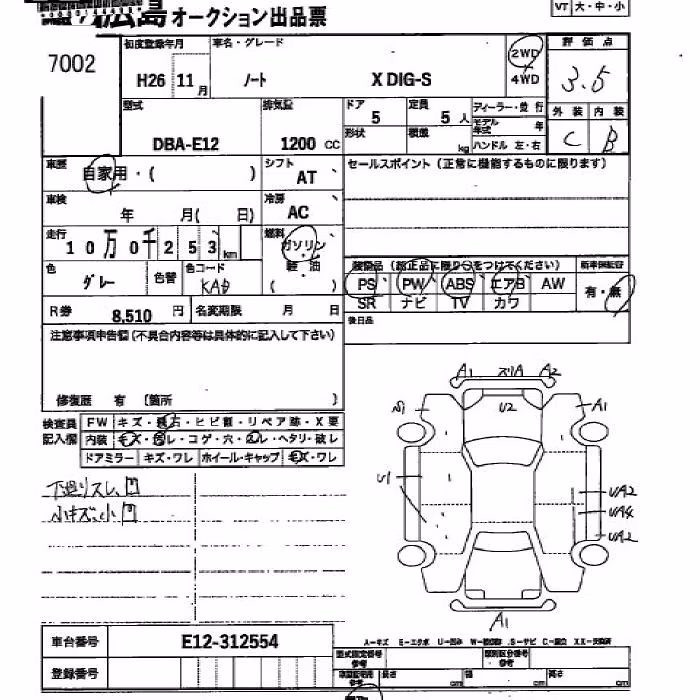 広島オークション出品票
VT 大・中・小
7002
初度登録年月 車名・グレード 2WD 評価点
H26 11月 ノート X DIG-S 4WD 3.5
型式 排気量 ドア 定員 ディーラー・並行 外装 内装
5 5人 モデル年式 年
DBA-E12 1200 CC 形状 積載 kg ハンドル 左・右 C B
車歴 自家用・( ) シフト AT セールスポイント(正常に機能するものに限ります)
車検 年 月( 日) 冷房 AC
走行 10万0千253km 燃料 ガソリン
軽・油
( )
装備品(純正品に限り○をつけてください) 新車保証書
色 グレー 色替 色コード KAD
PS PW ABS エアB AW 有・無
SR ナビ TV カワ
R券 8,510円 名変期限 月 日 後日品
注意事項申告欄(不具合内容等は具体的に記入して下さい)
修復歴 有 〔箇所 〕
検査員記入欄 FW キズ・飛石・ヒビ割・リペア跡・X要
内装 キズ・汚レ・コゲ・穴・スレ・ヘタリ・破レ
ドアミラー キズ・ワレ ホイール・キャップ キズ・ワレ
下廻リスレ、凹
小キズ、小凹
A1 スリA A2
S1 U2 A1
U1 UA2
UA4
UA2
A1
車台番号 E12-312554
A-キズ E-エクボ U-凹み W-補修跡 S-サビ C-腐食 XX-交換済
登録番号
型式指定番号 参考 類別区分番号 参考
長さ cm 幅 cm 高さ cm